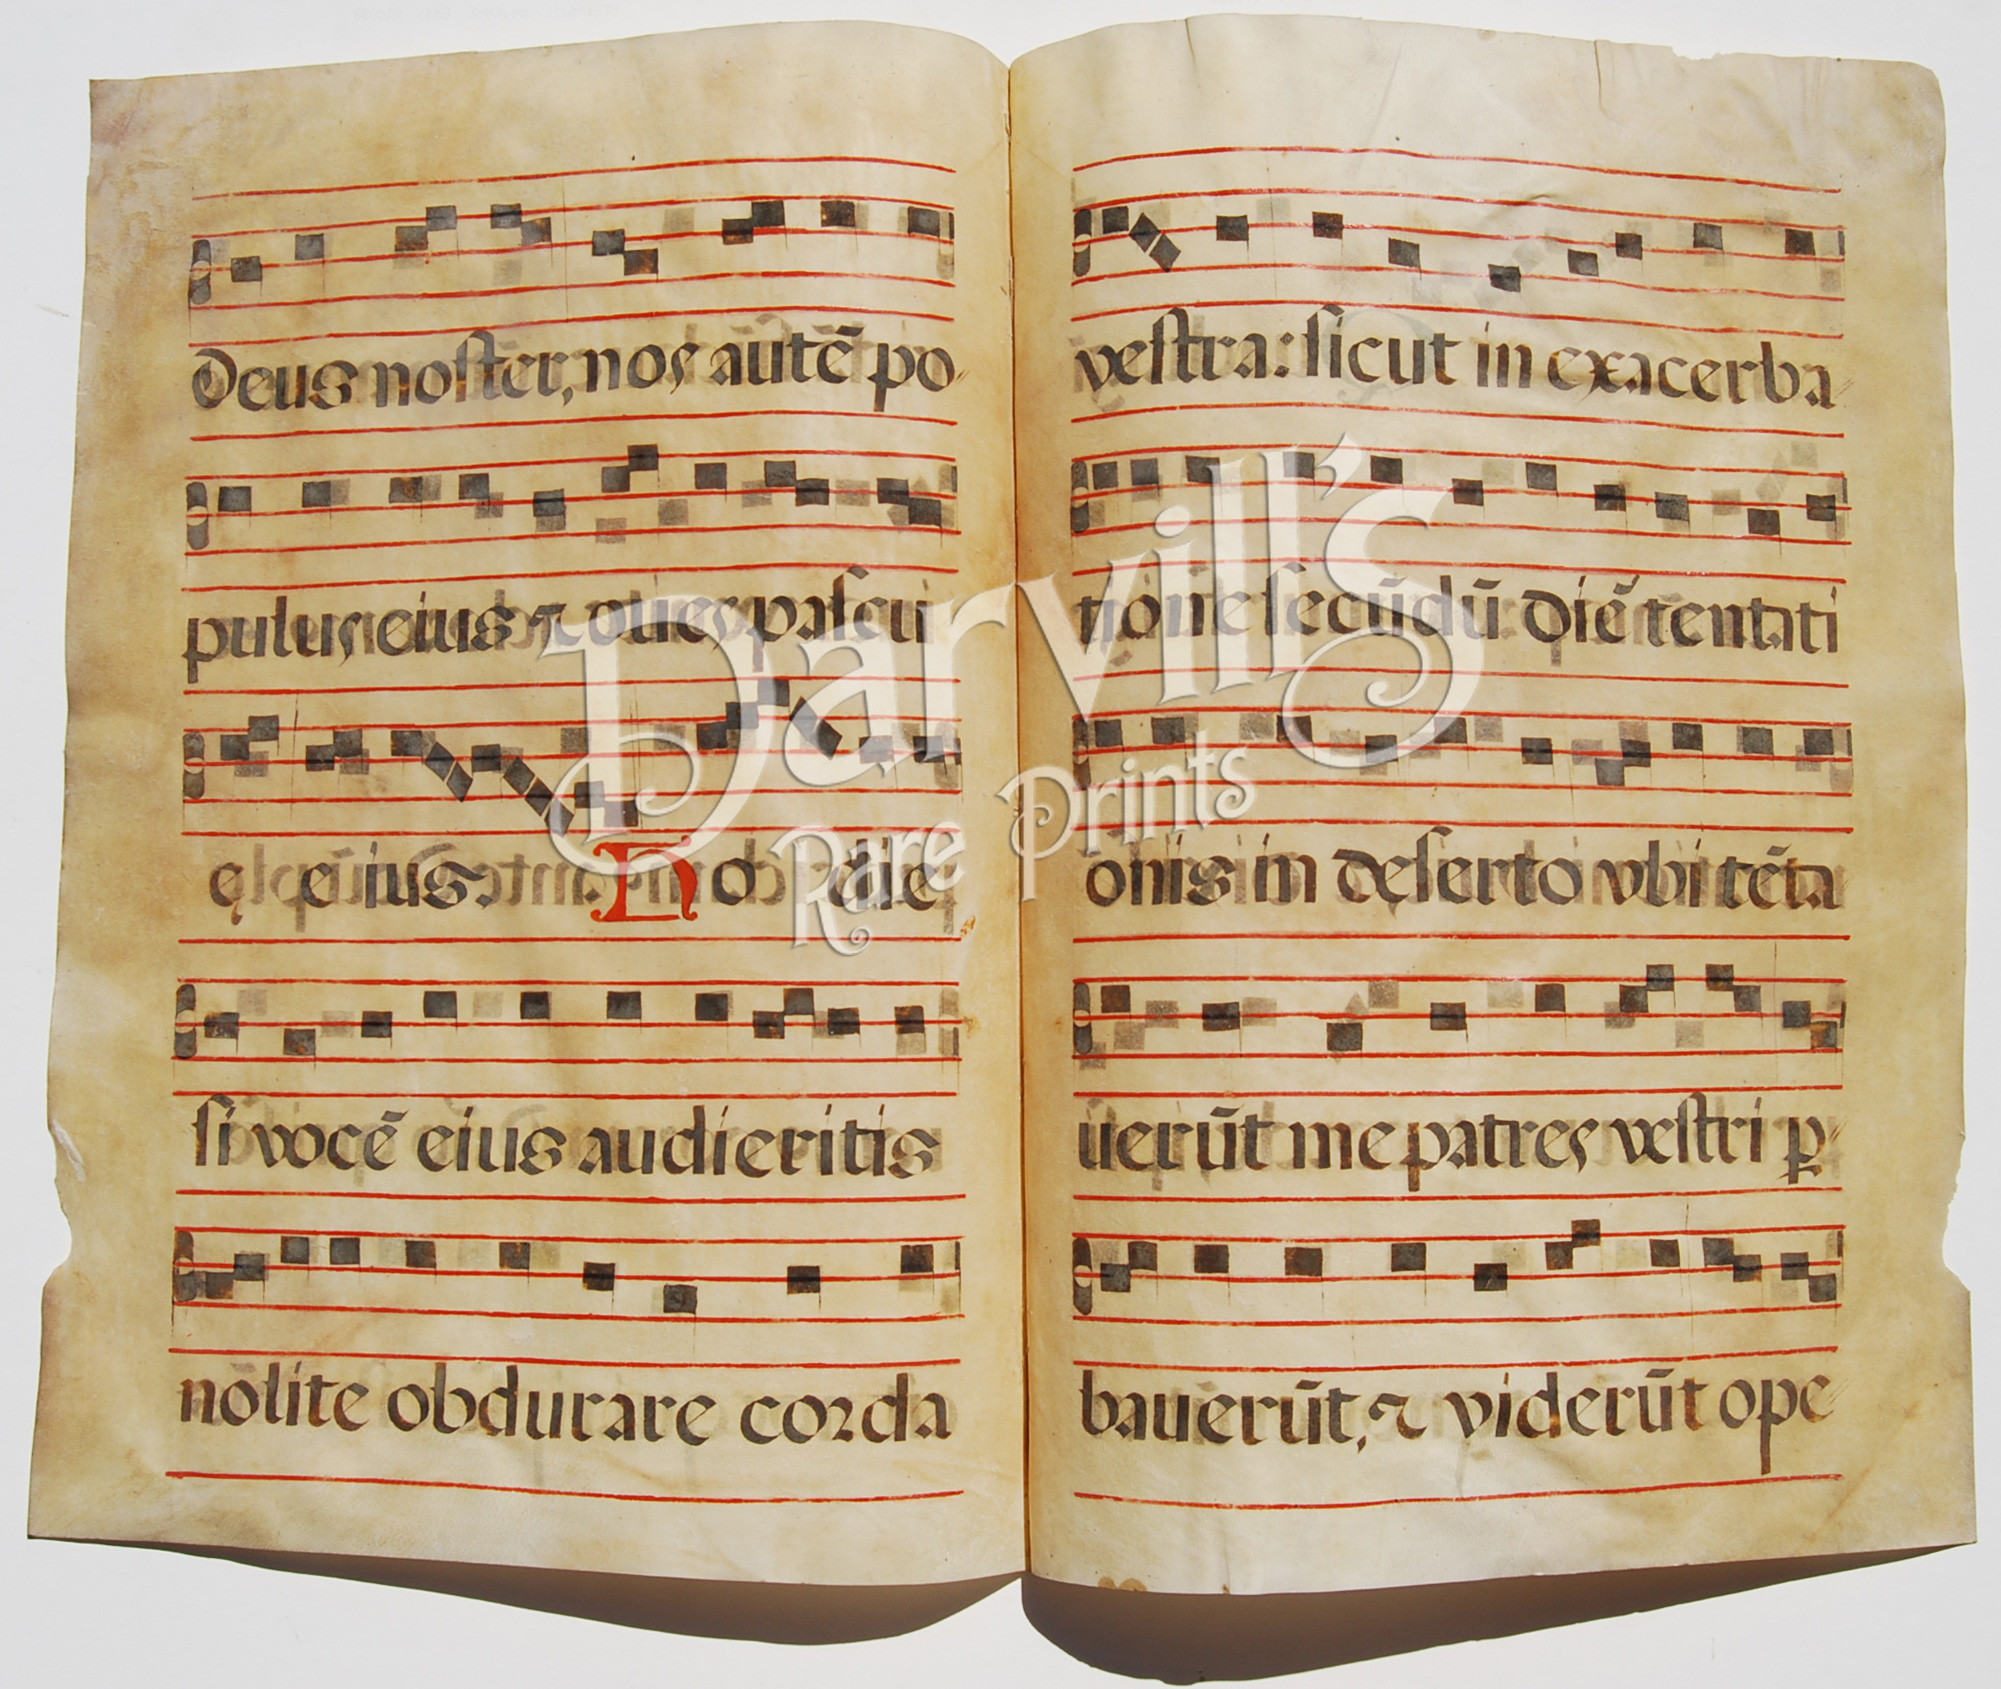 Deus noster, nos autē po-
pulus eius ⁊ oues pascu
ę eius. Hodie
si vocē eius audieritis
nolite obdurare corda
vestra: sicut in exacerba-
tione secūdū diē tentati
onis in deserto vbi tēta-
uerūt me patres vestri ꝑ-
bauerūt, ⁊ viderūt ope-
Darvill's
Rare Prints